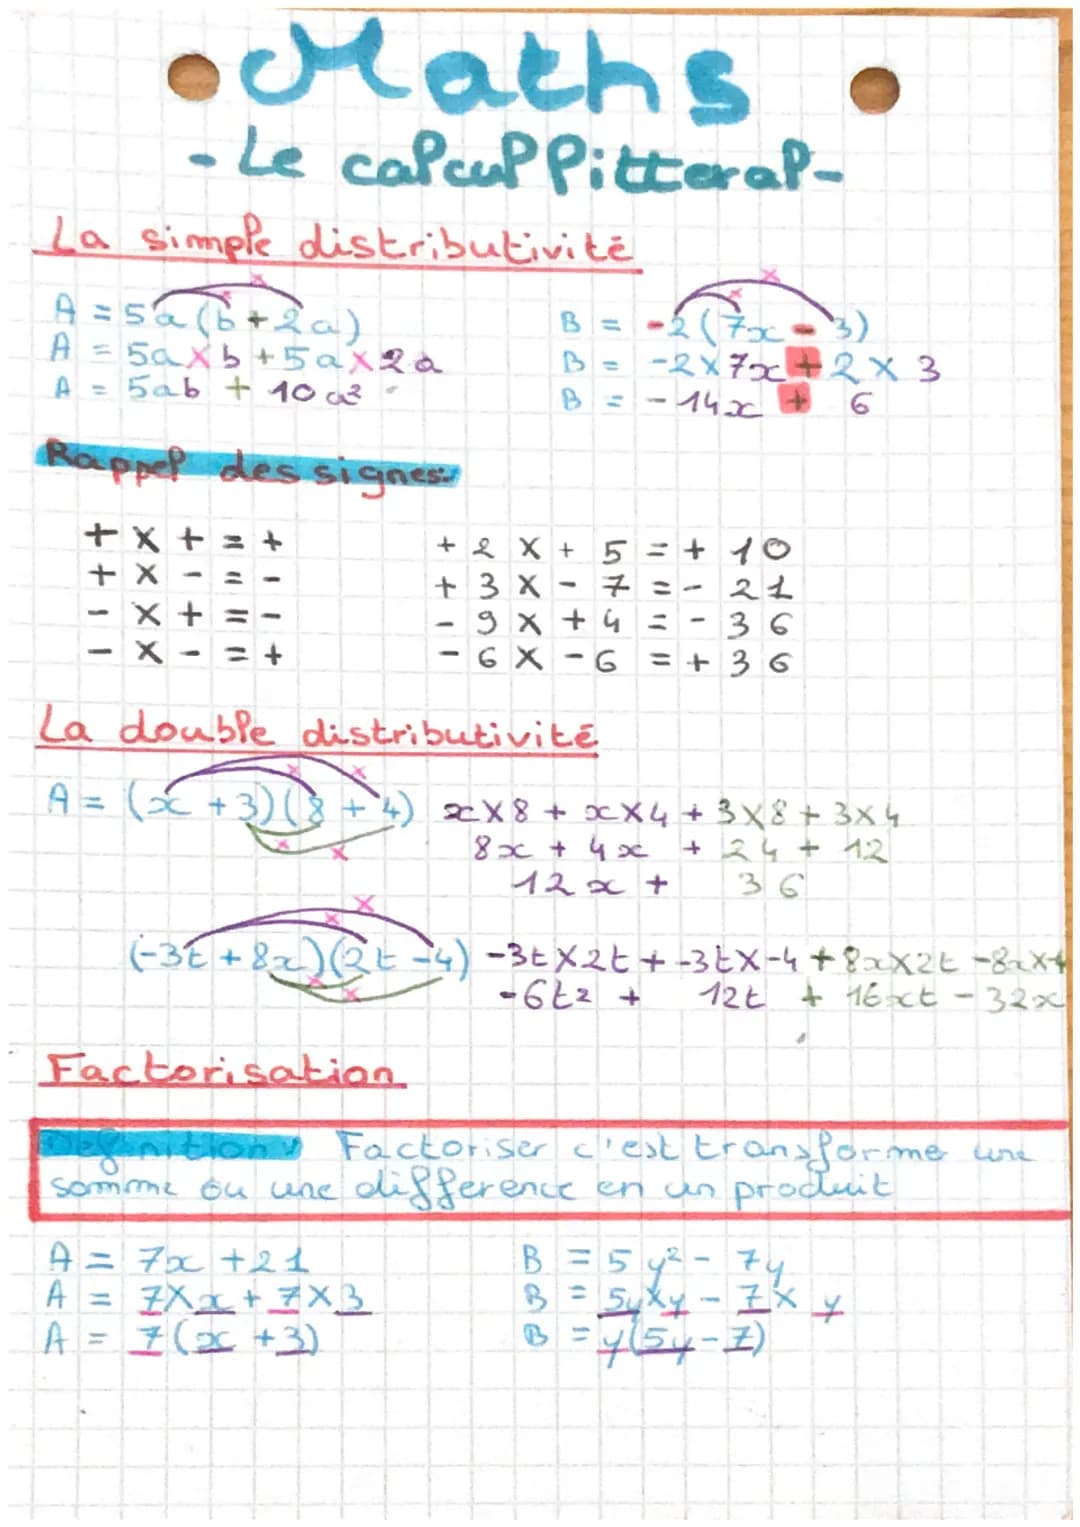 Maths
- Le calcul litteral -
La simple distributivité
A = 5a(b+2a)
A = 5a×b+5a×2a
A = 5ab + 10a²
B = -2(7x-3)
B = -2×7x+2×3
B = -14x + 6
Rappel des signes:
+ × + = +
+ × - = -
- × + = -
- × - = +
+ 2 × + 5 = + 10
+ 3 × - 7 = - 21
- 9 × + 4 = - 36
- 6 × - 6 = + 36
La double distributivité
A = (x+3)(8+4) x×8 + x×4 + 3×8 + 3×4
8x + 4x + 24 + 12
12x + 36
(-3t+8x)(2t-4) -3t×2t+-3t×-4+8x×2t-8x×4
-6t² + 12t + 16xt - 32x
Factorisation
Definition: Factoriser c'est transforme une
somme ou une difference en un produit
A = 7x +21
A = 7×x+7×3
A = 7(x+3)
B = 5y² - 7y
B = 5y×y - 7×y
B = y(5y-7)